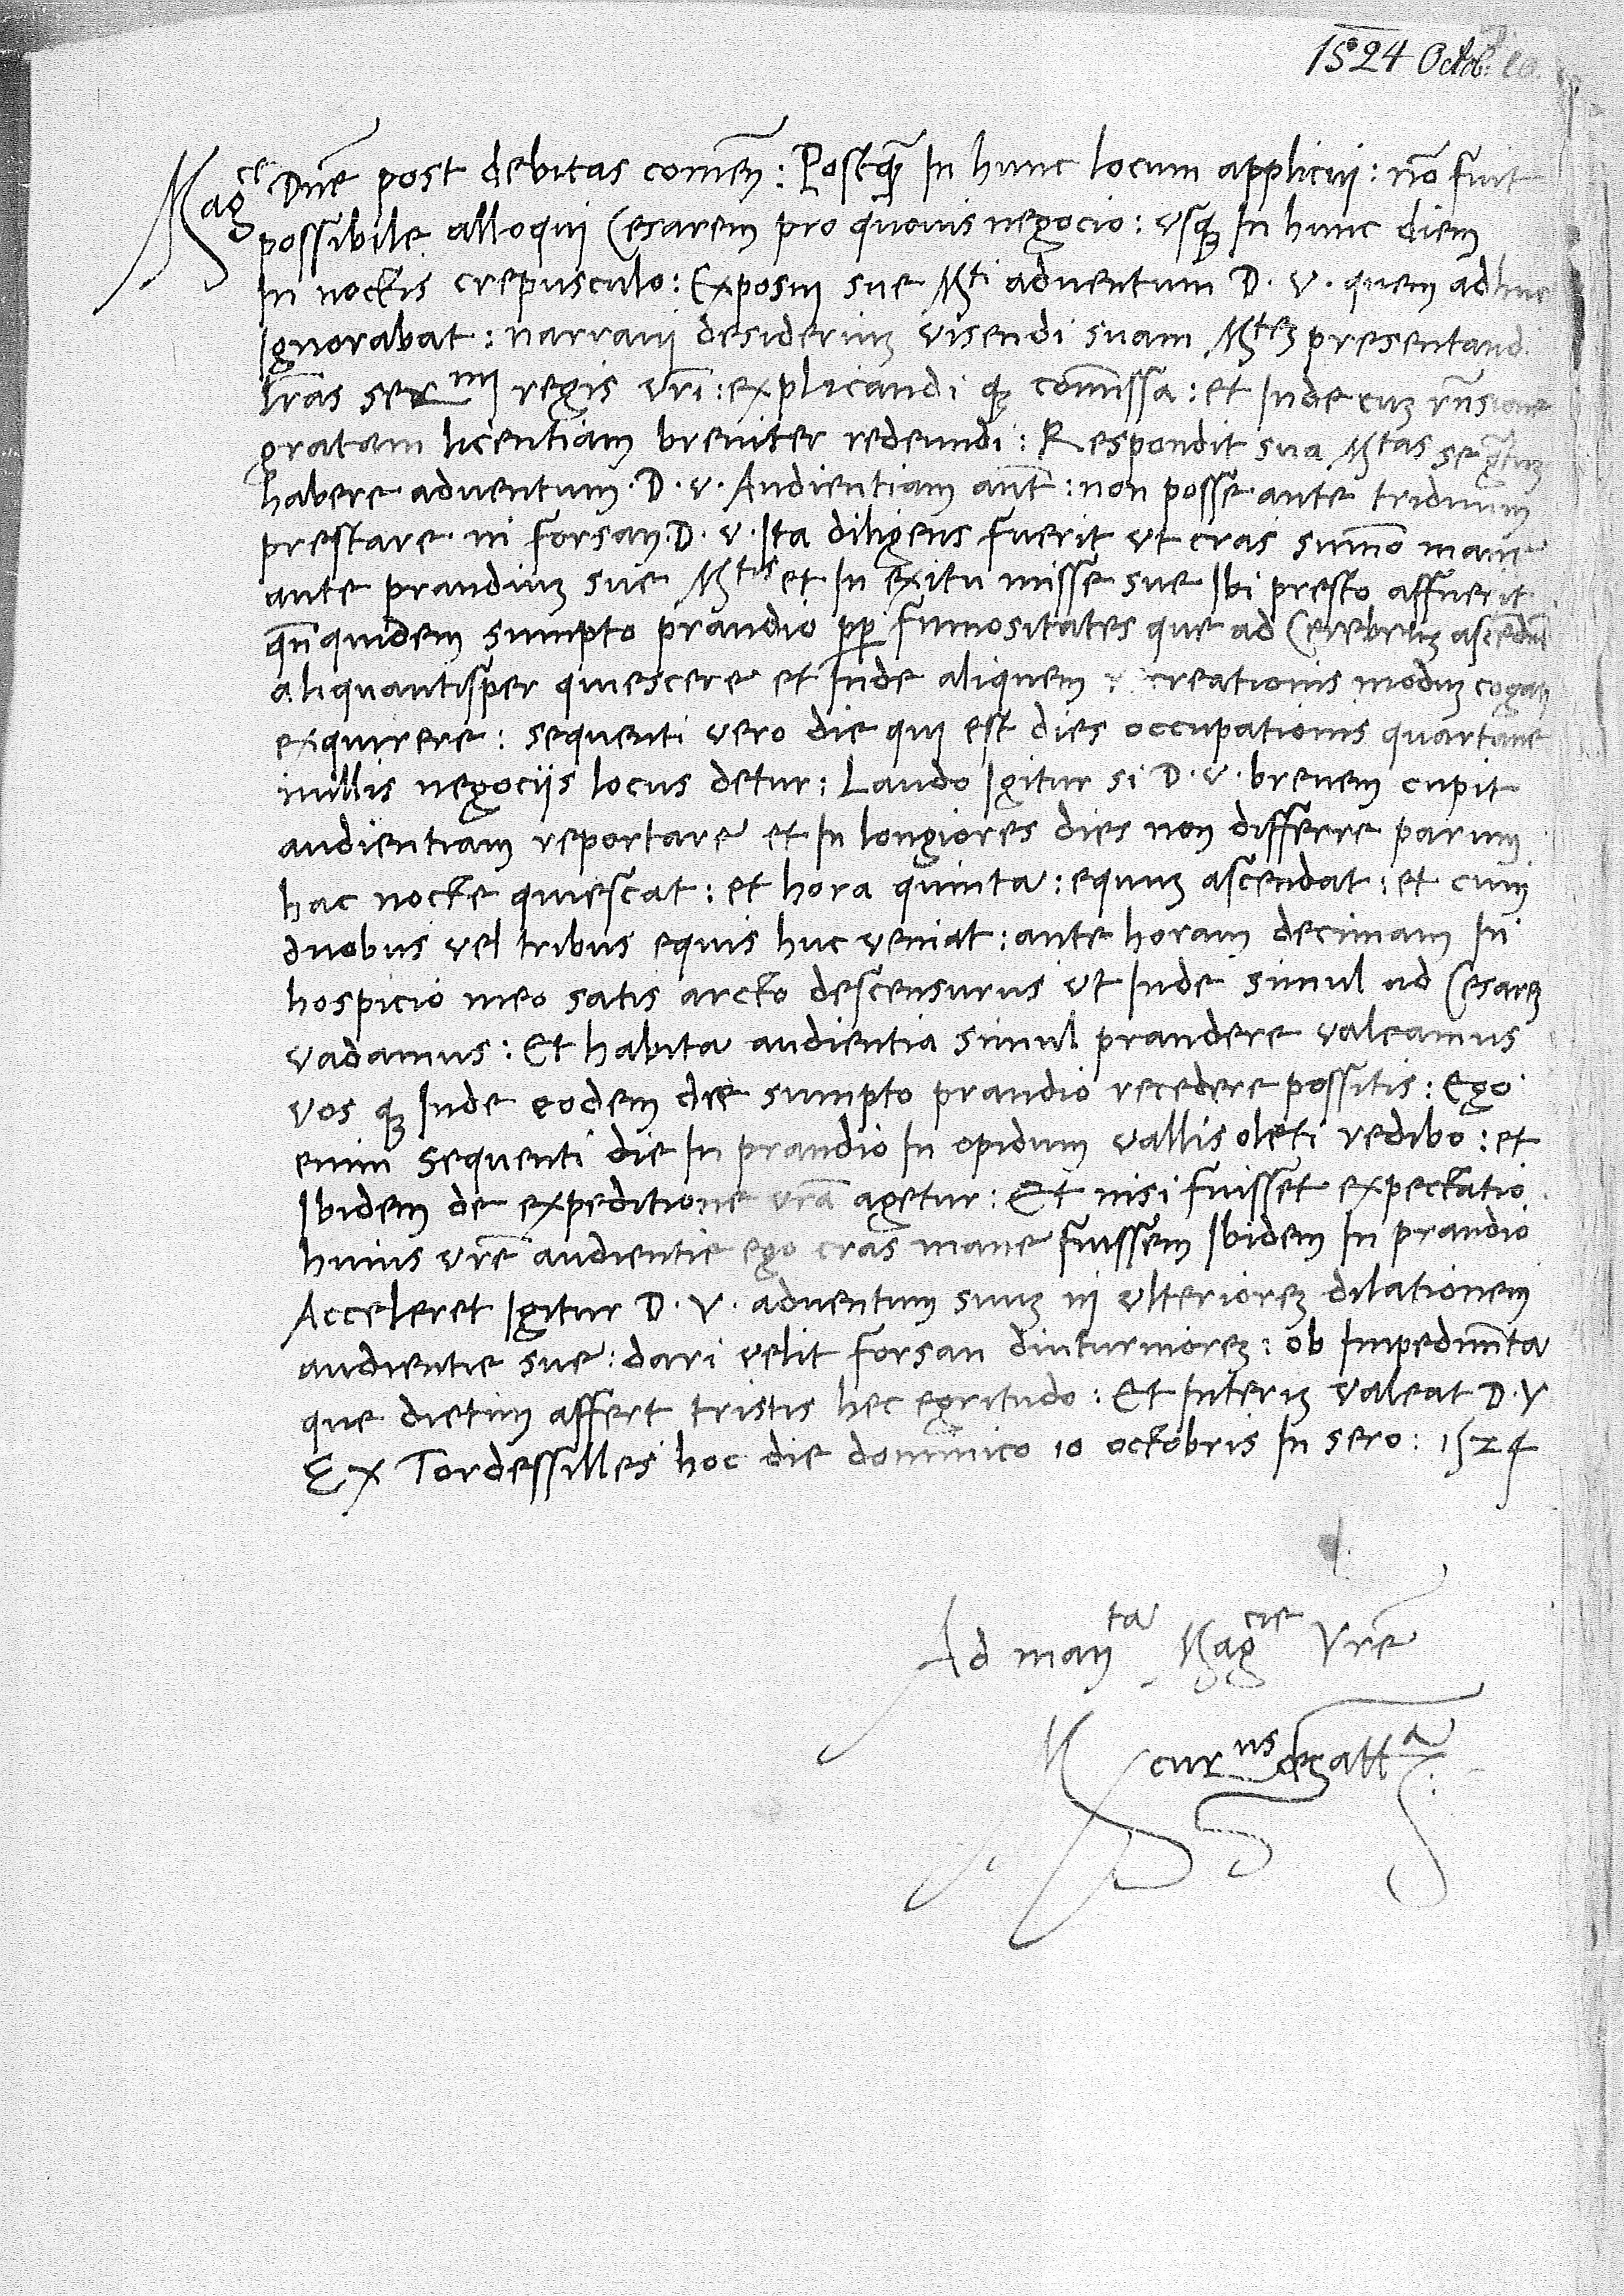 1524 Octob. 10.
Magce Dne post debitas comen: Postq̃ In hunc locum applicuj: nõ fuit
possibile alloquj Cesarem pro quouis negocio: vsq̃ In hunc diem
In noctis crepusculo: Exposui sue Mti aduentum D. v. quem adhuc
Ignorabat: narrauj desiderium visendi suam Mtem presentand.
lras sermj regis vri: explicandi q̃ comissa: et Inde cum rñsione
gratam licentiam breuiter redeundi: Respondit sua Mtas se gratum
habere aduentum. D. v. Audientiam aut: non posse ante triduum
prestare ni forsan. D. v. Ita diligens fuerit vt cras sumo mane
ante prandium sue Mtis et In exitu misse sue Ibi presto affuerit
qñ quidem sumpto prandio pp fumositates que ad Cerebrum ascedut
aliquantisper quiescere et Inde aliquem recreationis modum cogatur
exquirere: sequenti vero die quj est dies occupationis quartane
nullis negocijs locus detur: Laudo Igitur si D. v. breuem cupit
audientiam reportare et In longiores dies non differre parum
hac nocte quiescat: et hora quinta: equum ascendat: et cum
duobus vel tribus equis huc veniat: ante horam decimam In
hospicio meo satis arcto descensurus vt Inde simul ad Cesarem
vadamus: Et habita audientia simul prandere valeamus
vos q̃ Inde eodem die sumpto prandio recedere possitis: Ego
enim sequenti die In prandio In opidum vallis oleti redibo: et
Ibidem de expeditione vra agetur: Et nisi fuisset expectatio
huius vre audientie ego cras mane fuissem Ibidem In prandio
Acceleret Igitur D. V. aduentum suum nj vlteriorem dilationem
audientie sue: dari velit forsan diuturniorem: ob Impedimta
que dietim affert tristis hec egritudo: Et Interim valeat D. V
Ex Tordessilles hoc die dominico 10 octobris In sero: 1524
Ad manta Magcie Vre
Mercurnus de gatta